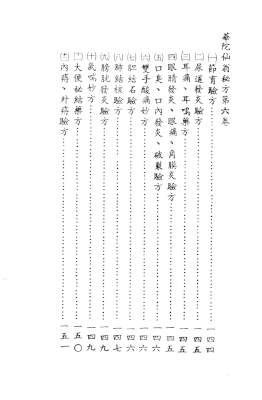 華陀仙翁秘方第六卷
㈠節育驗方…………一四四
㈡尿道發炎驗方…………一四五
㈢耳痛、耳鳴藥方…………一四五
㈣眼睛發炎、眼痛、角膜炎驗方…………一四五
㈤口臭、口內發炎、破裂驗方…………一四六
㈥雙手酸痛妙方…………一四六
㈦胆結石驗方…………一四六
㈧肺結核驗方…………一四七
㈨膀胱發炎驗方…………一四九
㈩氣喘妙方…………一四九
大便秘結藥方…………一五〇
內痔、外痔驗方…………一五一